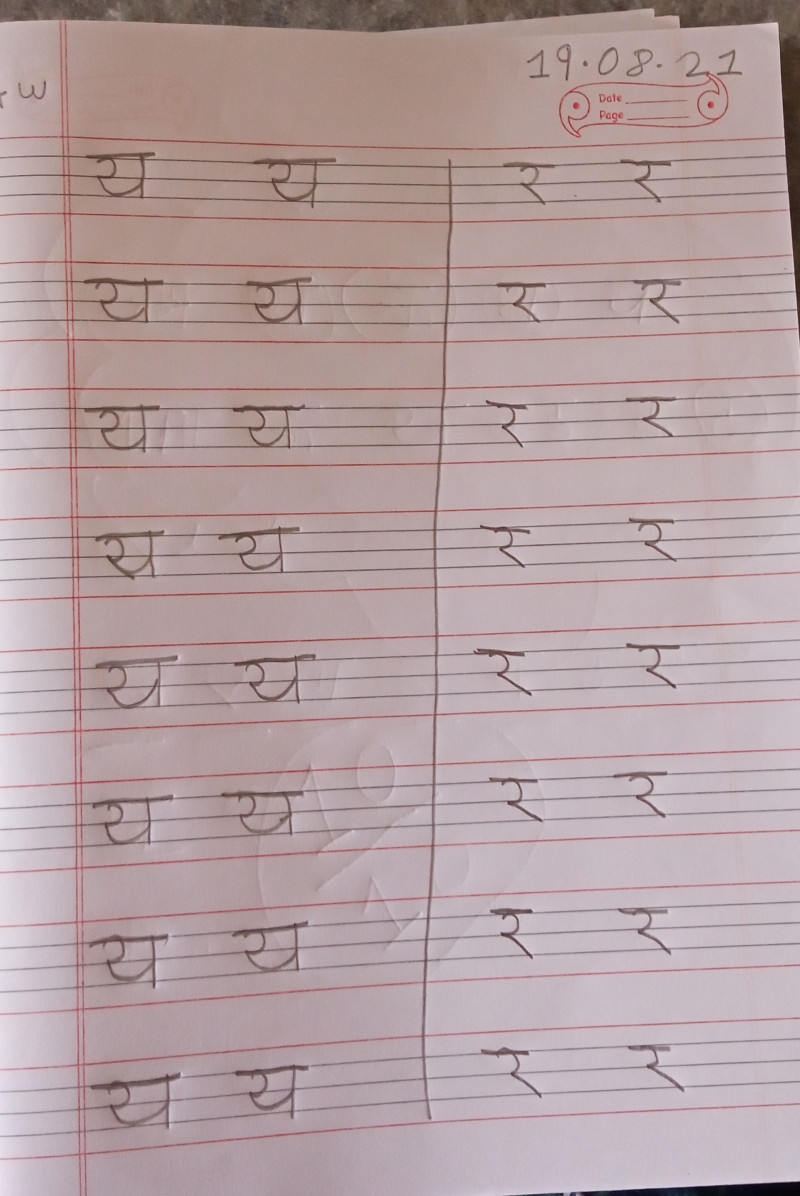 19.08.21
w
Date
Page
य य र र
य य र र
य य र र
य य र र
य य र र
य य र र
य य र र
य य र र
10/10